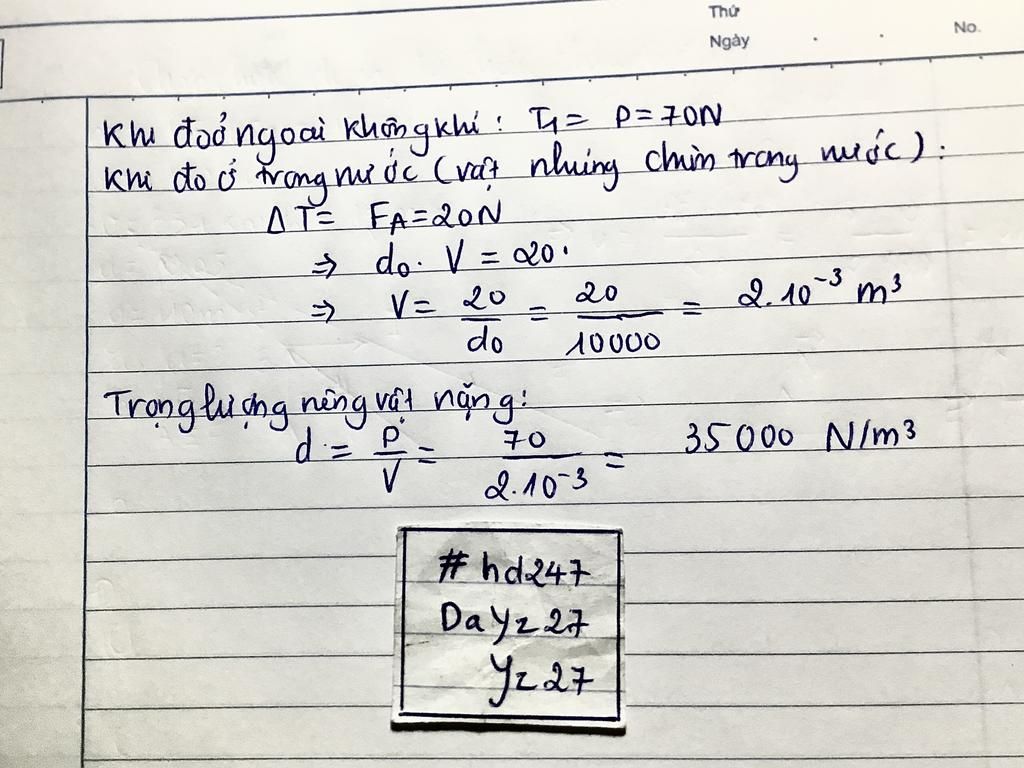 Thứ
Ngày . .
No.
Khi đo ở ngoài không khí: T₁ = P = 70N
Khi đo ở trong nước (vật nhúng chìm trong nước):
Δ T = F_A = 20N
⇒ d₀. V = 20.
⇒ V = 20/d₀ = 20/10000 = 2.10⁻³ m³
Trọng lượng riêng vật nặng:
d = P/V = 70/2.10⁻³ = 35000 N/m³
# hd247
DaYz27
Yz27